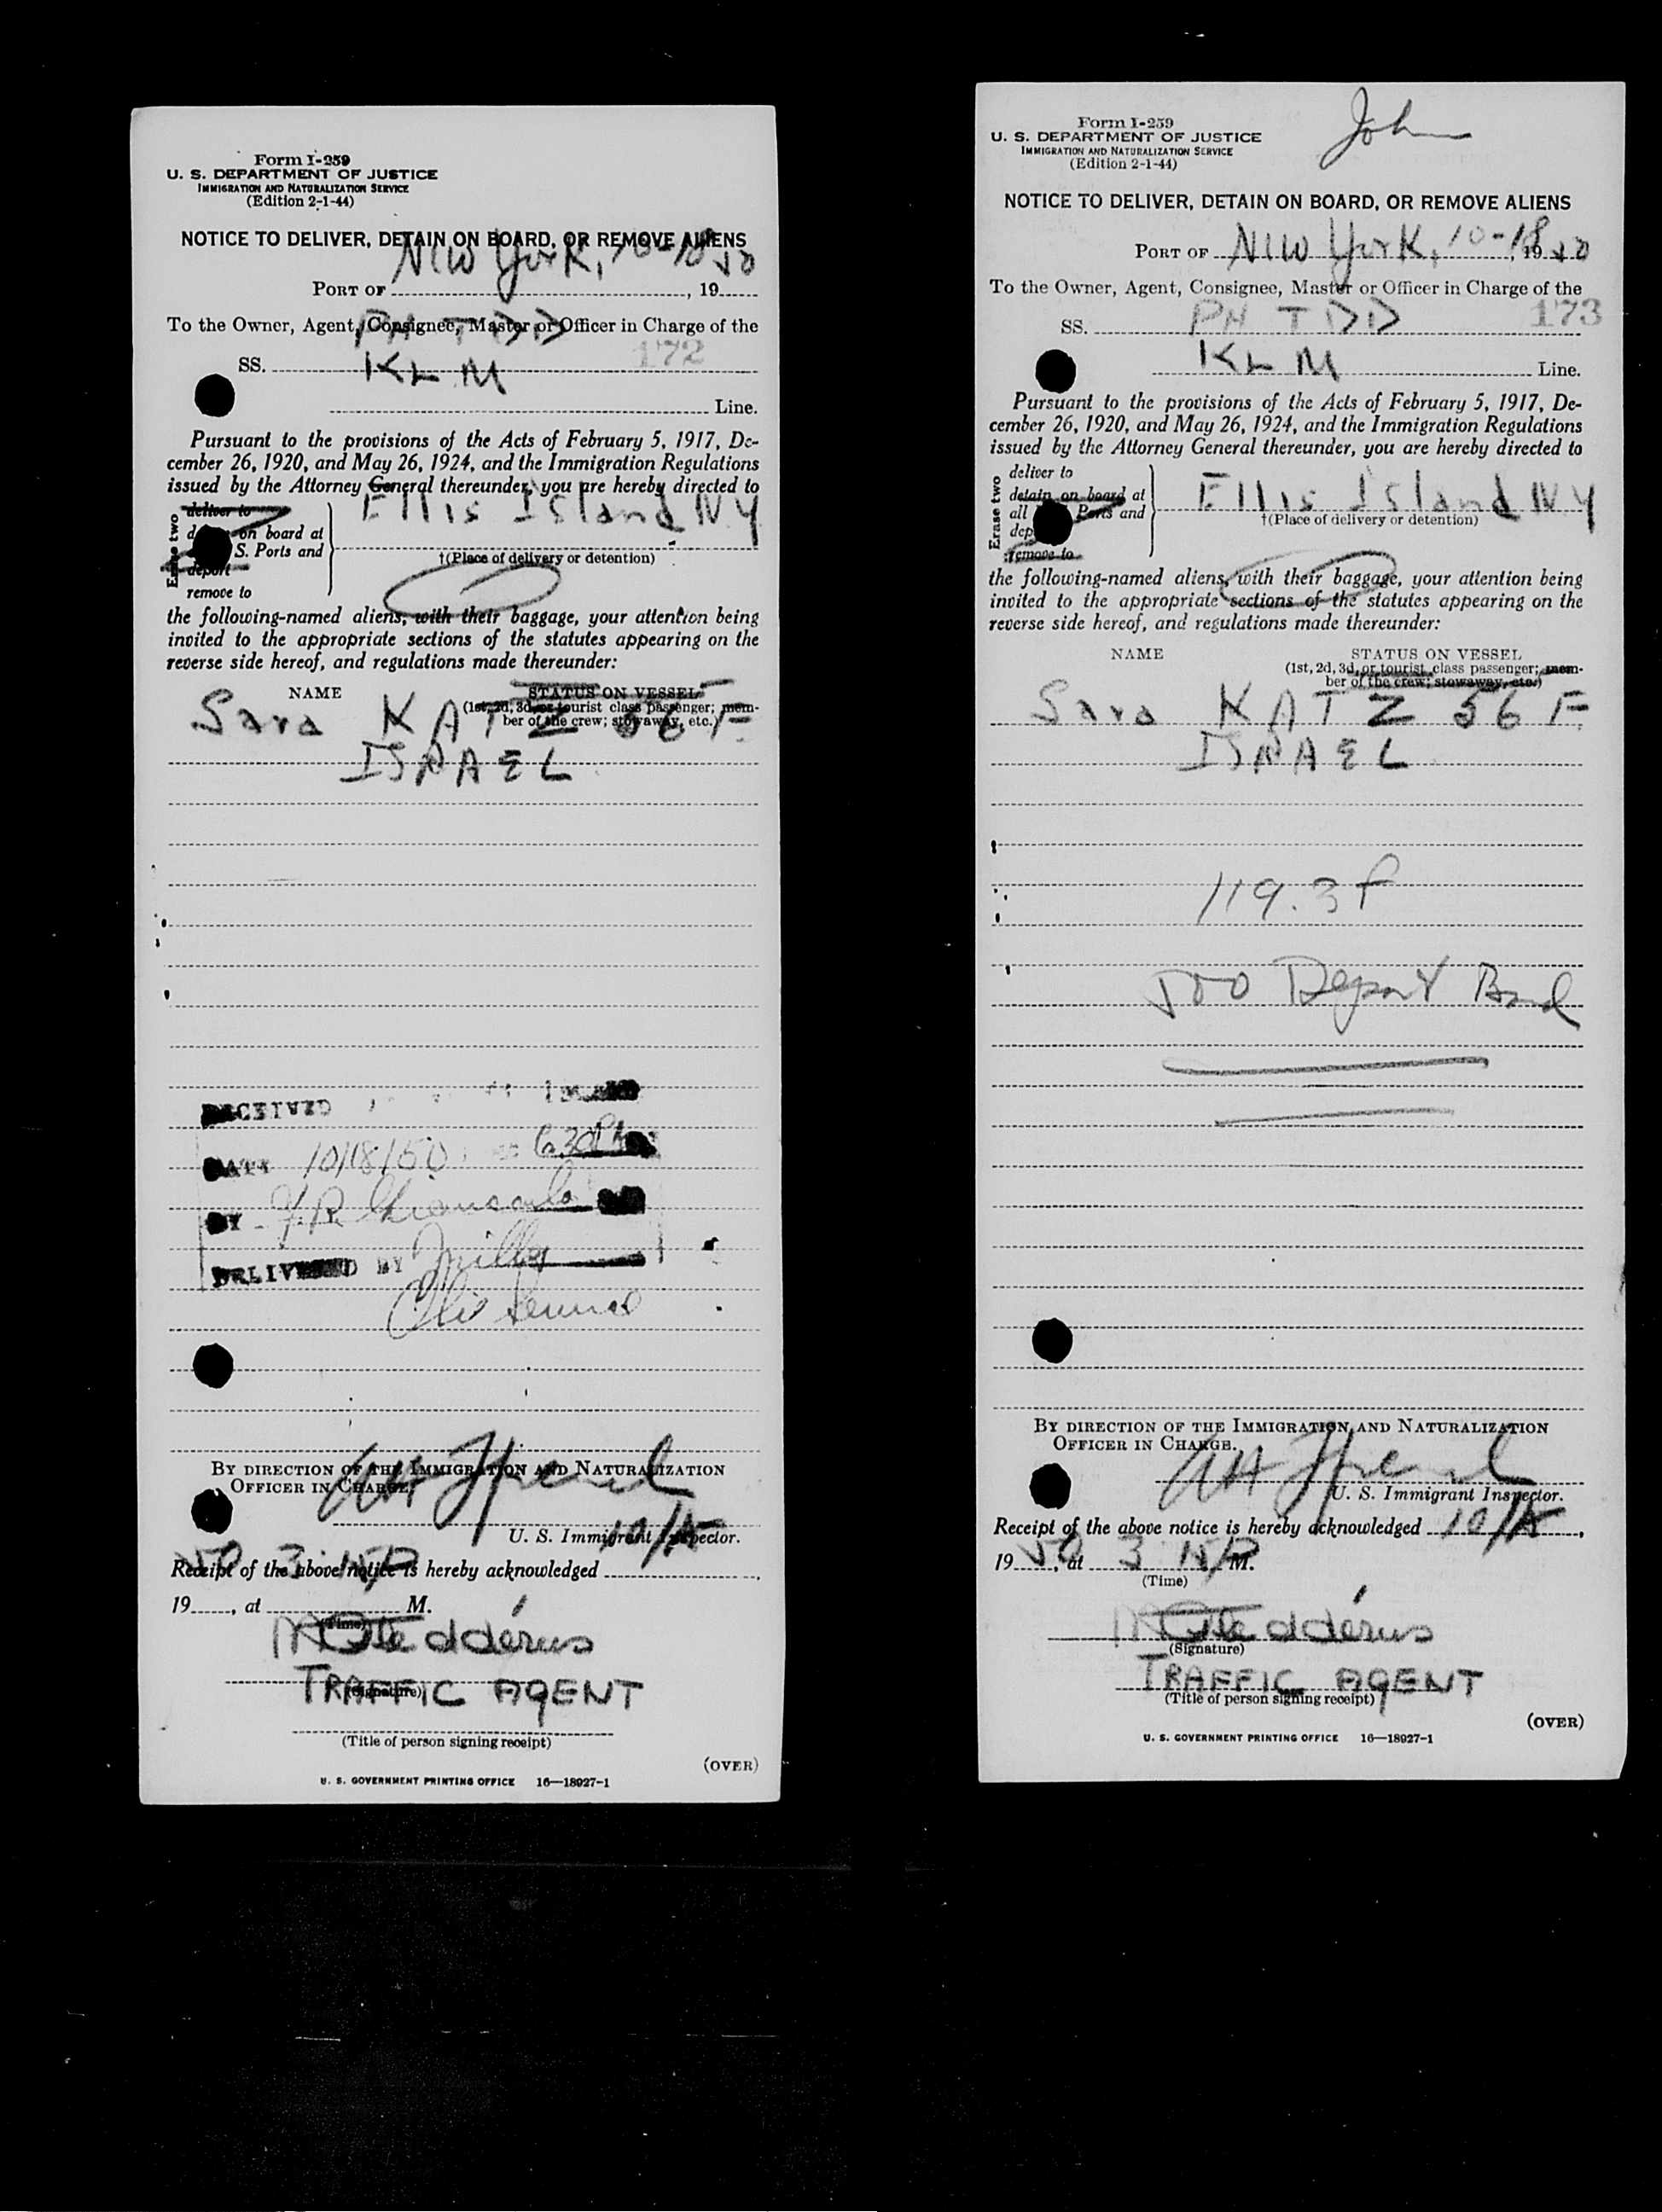 Form I-259
U. S. DEPARTMENT OF JUSTICE
IMMIGRATION AND NATURALIZATION SERVICE
(Edition 2-1-44)
NOTICE TO DELIVER, DETAIN ON BOARD, OR REMOVE ALIENS
New York, 10-18 50
PORT OF , 19
To the Owner, Agent, Consignee, Master or Officer in Charge of the
PH TDD
172
SS. KLM
Line.
Pursuant to the provisions of the Acts of February 5, 1917, De-
cember 26, 1920, and May 26, 1924, and the Immigration Regulations
issued by the Attorney General thereunder, you are hereby directed to
Erase two
deliver to
on board at
S. Ports and
deport
remove to
Ellis Island NY
†(Place of delivery or detention)
the following-named aliens, with their baggage, your attention being
invited to the appropriate sections of the statutes appearing on the
reverse side hereof, and regulations made thereunder:
NAME STATUS ON VESSEL
(1st, 2d, 3d, or tourist class passenger; mem-
ber of the crew; stowaway, etc.)
Sara KATZ 56 F
ISRAEL
RECEIVED
DATE 10/18/50 630PM
BY F.R.
DELIVERED BY Miller
BY DIRECTION OF THE IMMIGRATION AND NATURALIZATION
OFFICER IN CHARGE.
U. S. Immigrant Inspector.
10/18
Receipt of the above notice is hereby acknowledged
50 3:15P
19 , at M.
(Time)
TRAFFIC AGENT
(Signature)
(Title of person signing receipt)
(OVER)
U. S. GOVERNMENT PRINTING OFFICE 16—18927-1
Form I-259
U. S. DEPARTMENT OF JUSTICE
IMMIGRATION AND NATURALIZATION SERVICE
(Edition 2-1-44)
John
NOTICE TO DELIVER, DETAIN ON BOARD, OR REMOVE ALIENS
PORT OF New York, 10-18, 19 50
To the Owner, Agent, Consignee, Master or Officer in Charge of the
SS. PH TDD 173
KLM Line.
Pursuant to the provisions of the Acts of February 5, 1917, De-
cember 26, 1920, and May 26, 1924, and the Immigration Regulations
issued by the Attorney General thereunder, you are hereby directed to
Erase two
deliver to
detain on board at
all Ports and
dep
remove to
Ellis Island NY
†(Place of delivery or detention)
the following-named aliens, with their baggage, your attention being
invited to the appropriate sections of the statutes appearing on the
reverse side hereof, and regulations made thereunder:
NAME STATUS ON VESSEL
(1st, 2d, 3d, or tourist class passenger; mem-
ber of the crew; stowaway, etc.)
Sara KATZ 56 F
ISRAEL
119.3f
500 Depart Bond
BY DIRECTION OF THE IMMIGRATION AND NATURALIZATION
OFFICER IN CHARGE.
U. S. Immigrant Inspector.
Receipt of the above notice is hereby acknowledged 10/18,
19 50, at 3:15P M.
(Time)
(Signature)
TRAFFIC AGENT
(Title of person signing receipt)
(OVER)
U. S. GOVERNMENT PRINTING OFFICE 16—18927-1